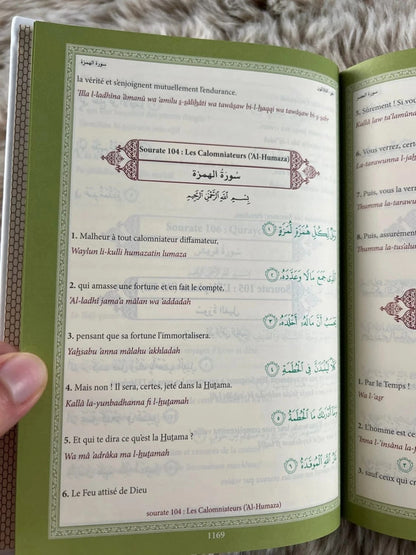 سورة الهمزة
la vérité et s'enjoignent mutuellement l'endurance.
'Illa l-ladhîna 'âmanû wa 'amilu ṣ-ṣâliḥâti wa tawâṣaw bi-l-ḥaqqi wa tawâṣaw bi-ṣ-ṣabr
Sourate 104 : Les Calomniateurs ('Al-Humaza)
سُورَةُ الهُمَزَةِ
بِسْمِ اللَّهِ الرَّحْمَٰنِ الرَّحِيمِ
وَيْلٌ لِّكُلِّ هُمَزَةٍ لُّمَزَةٍ ١
1. Malheur à tout calomniateur diffamateur,
Waylun li-kulli humazatin lumaza
الَّذِي جَمَعَ مَالًا وَعَدَّدَهُ ٢
2. qui amasse une fortune et en fait le compte,
'Al-ladhî jama'a mâlan wa 'addadah
يَحْسَبُ أَنَّ مَالَهُ أَخْلَدَهُ ٣
3. pensant que sa fortune l'immortalisera.
Yaḥsabu 'anna mâlahu 'akhladah
كَلَّا لَيُنبَذَنَّ فِي الْحُطَمَةِ ٤
4. Mais non ! Il sera, certes, jeté dans la Hutama.
Kallâ la-yunbadhanna fi l-ḥuṭamah
وَمَا أَدْرَاكَ مَا الْحُطَمَةُ ٥
5. Et qui te dira ce qu'est la Hutama ?
Wa mâ 'adrâka ma l-ḥuṭamah
نَارُ اللَّهِ الْمُوقَدَةُ ٦
6. Le Feu attisé de Dieu
sourate 104 : Les Calomniateurs ('Al-Humaza)
1169
سورة الهمزة
5. Sûrement ! Si vo
Kallâ law ta'lamûna
6. Vous verrez, certe
La-tarawunna l-jaḥî
7. Puis, vous la verre
Thumma la-tarawu
8. Puis, assurément
Thumma la-tus'alu
1. Par le Temps !
Wa l-'aṣr
2. L'homme est ce
'Inna l-'insâna la-f
3. sauf ceux qui cr